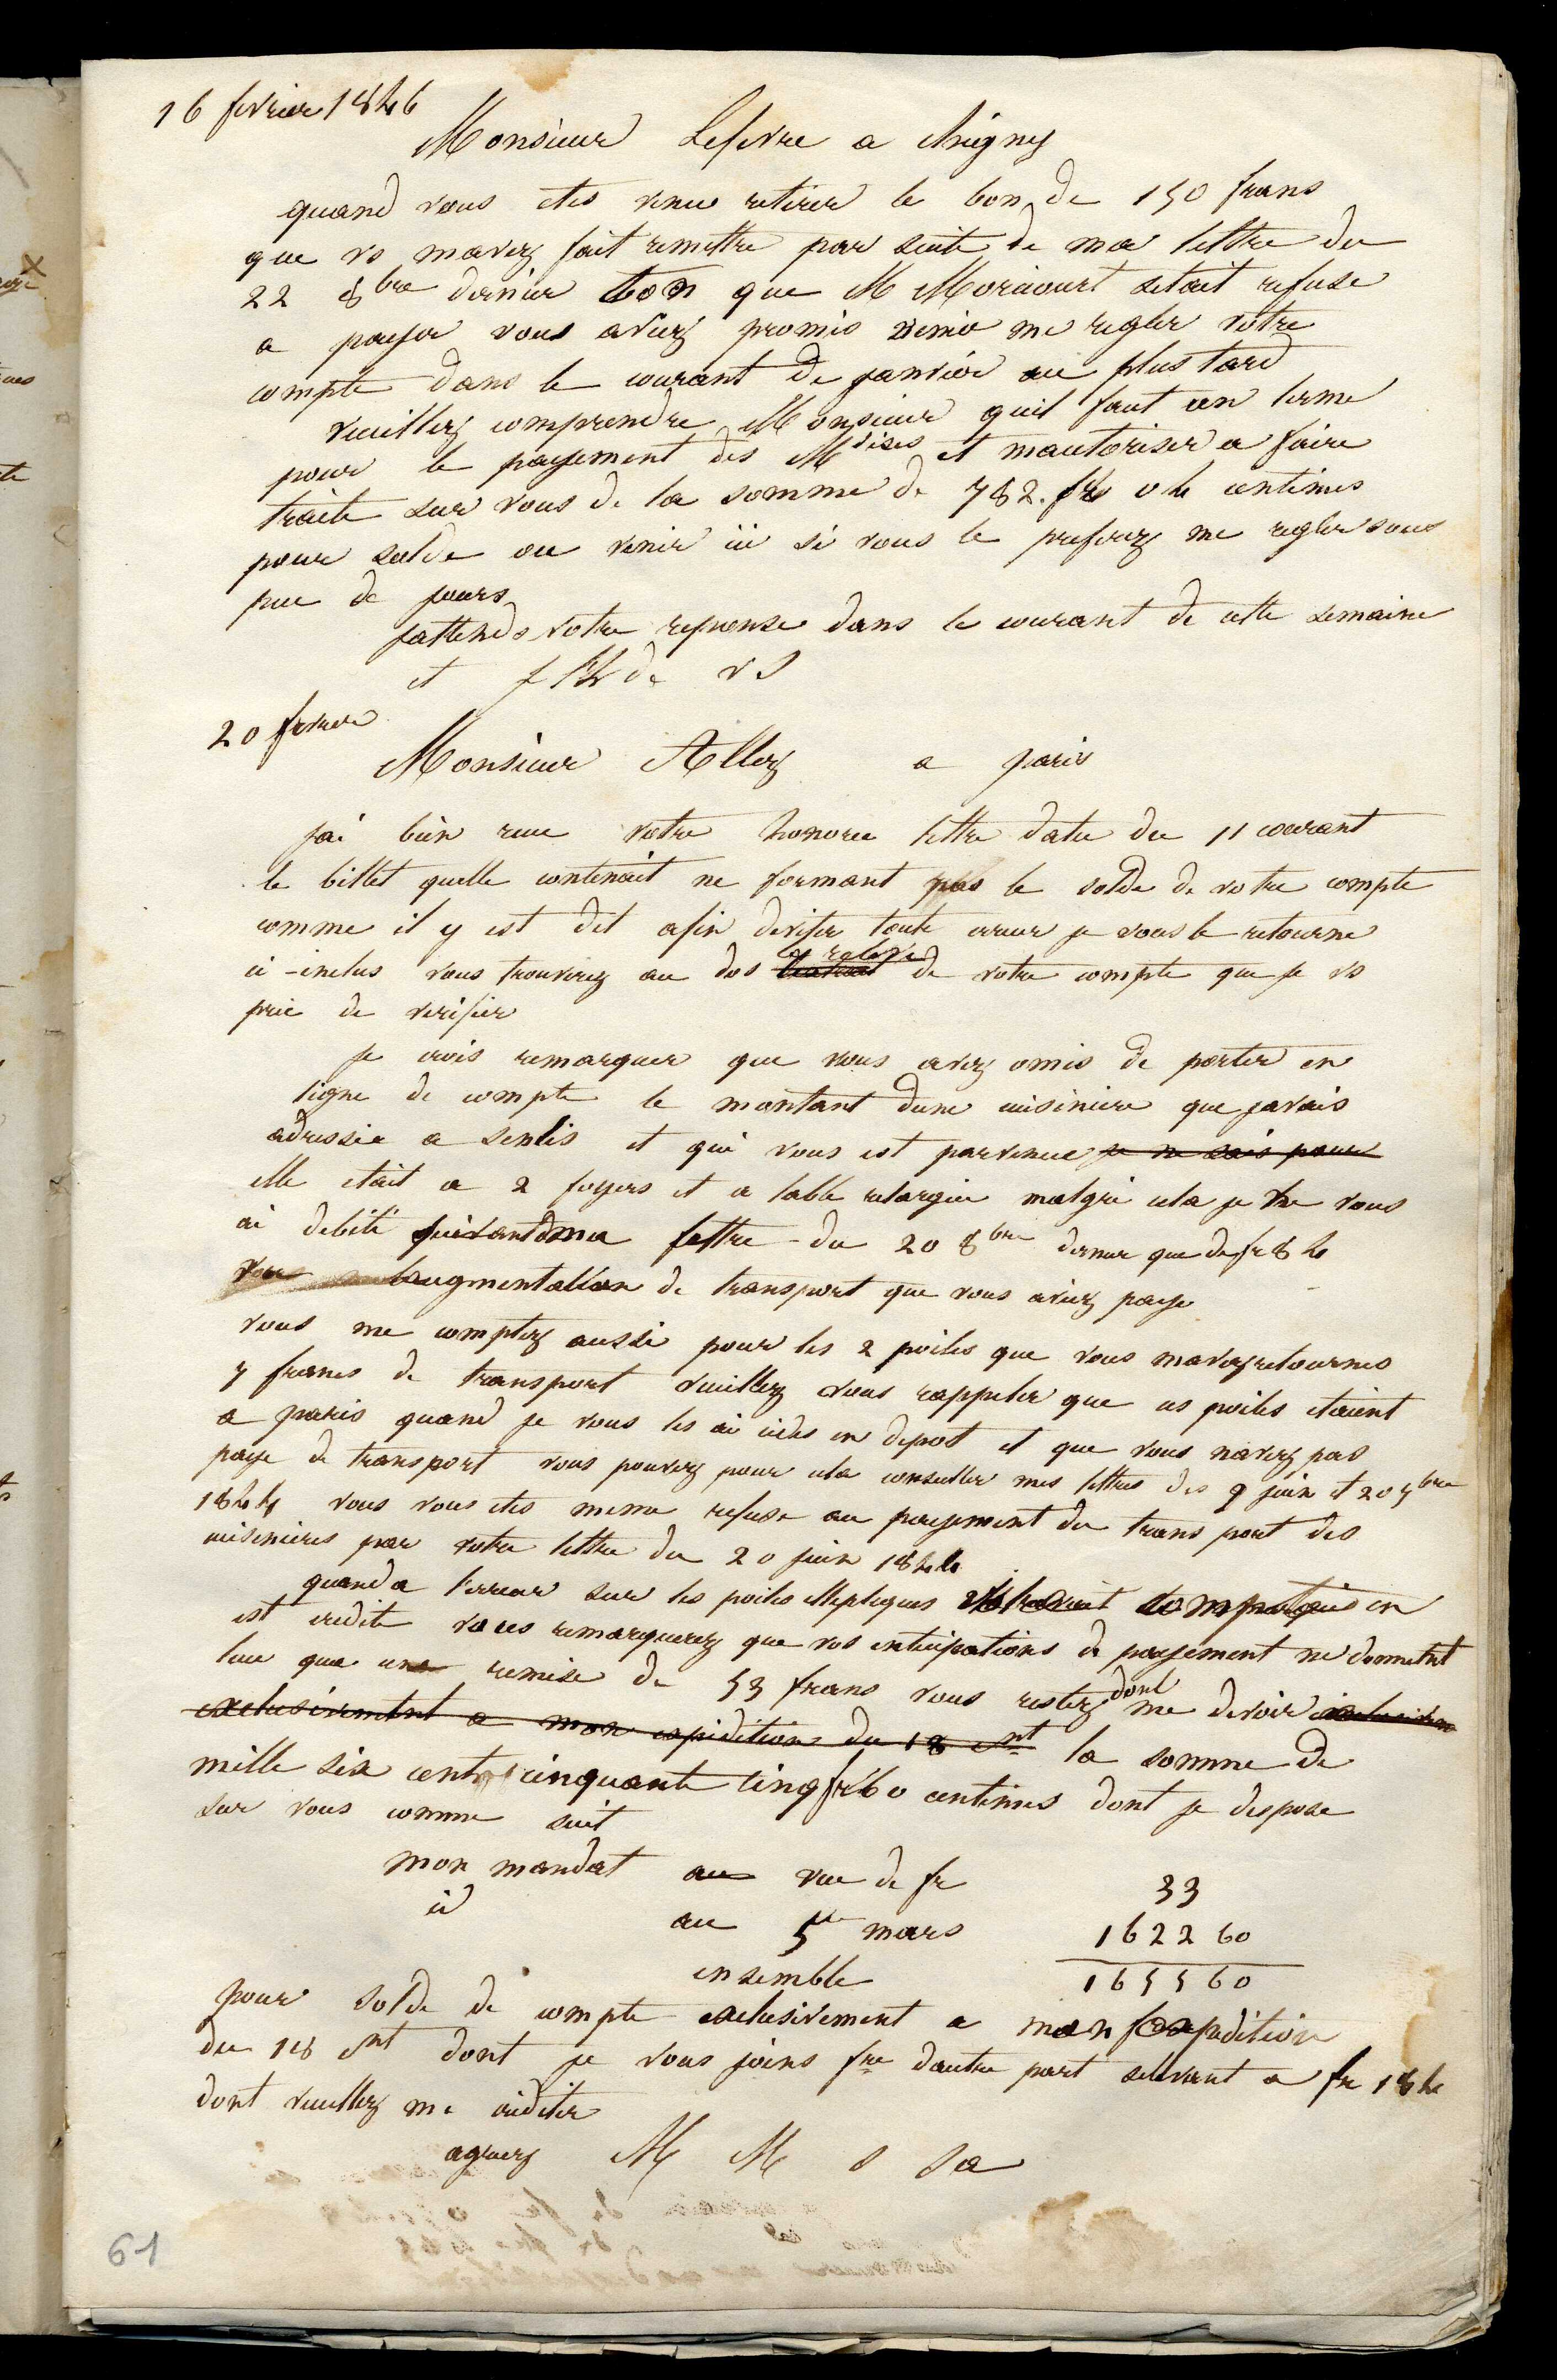 16 fevrier 1846
Monsieur Lefevre a Chigny
quand vous etes venu retirer le bon de 150 frans
que vs mavez fait remettre par suite de ma lettre du
22 8bre dernier bon que M Moricourt setait refuse
a payer vous aviez promis me regler votre
compte dans le courant de janvier au plus tard
veuillez comprendre Monsieur quil faut un terme
pour le payement des Mdises et mautoriser a faire
traite sur vous de la somme de 782. frs 04 centimes
pour solde ou venir ici si vous le preferez me regler sous
peu de jours
jattends votre reponse dans le courant de cette semaine
et
20 fevrier
Monsieur Allez a paris
jai bien recu votre honoree lettre datee du 11 courant
le billet quelle contenait ne formant pas le solde de votre compte
comme il y est dit afin deviter toute erreur je vous le retourne
ci-inclus vous trouverez au dos le releve de votre compte que je vs
prie de verifier
je crois remarquer que vous avez omis de porter en
ligne de compte le montant dune cuisiniere que javais
adressee a senlis et qui vous est parvenue je ne sais pour
elle etait a 2 foyers et a table relargie malgre cela je ne vous
ai debite suivant ma lettre du 20 8bre dernier que de fr 84
vu laugmentation de transport que vous aviez paye
vous me comptez aussi pour les 2 poiles que vous mavez retournes
7 francs de transport veuillez vous rappeler que ces poiles etaient
a paris quand je vous les ai cedes en depot et que vous navez pas
paye de transport vous pouvez pour cela consulter mes lettres des 9 juin et 20 7bre
1844 vous vous etes meme refuse au payement du transport des
cuisinieres par votre lettre du 20 juin 1844
quand a lerreur sur les poiles en
est credite vous remarquerez que vos anticipations de payement ne donnent
lieu qua une remise de 53 frans vous restez dont me devoir
exclusivement a mon expedition du 18 cnt la somme de
mille six cent cinquante cinq fr 60 centimes dont je dispose
sur vous comme suit
mon mandat au vue de fr 33
id au 5 mars 1622 60
ensemble 1655 60
pour solde de compte exclusivement a mon expedition
du 18 cnt dont je vous joins fre dautre part selevant a fr 184
dont veuillez me crediter
agreez M M s sa
61